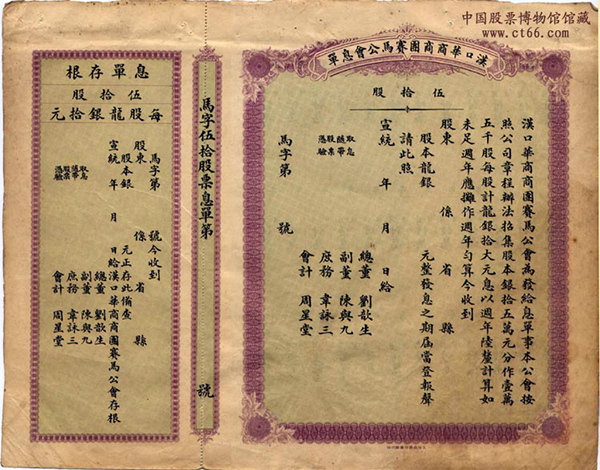 中国股票博物馆馆藏
www.ct66.com
漢口華商商團賽馬公會息單
伍拾股
漢口華商商團賽馬公會為發給息單事本公會按
照公司章程辦法招集股本銀拾五萬元分作壹萬
五千股每股計龍銀拾大元息以週年陸釐計算如
未足週年應攤作週年勻算今收到
股東 係 省 縣
股本龍銀 元整發息之期屆當登報聲
請此照
宣統 年 月 日給
總董 劉歆生
副董 陳與九
庶務 韋詠三
會計 周星堂
取息
隨帶
股票
憑驗
馬字第 號
馬字伍拾股票息單第 號
息單存根
伍拾股
每股龍銀拾元
馬字第 號今收到
股東 係 省 縣
股本銀 元正存此備查
宣統 年 月 日給漢口華商商團賽馬公會存根
總董 劉歆生
副董 陳與九
庶務 韋詠三
會計 周星堂
取息
隨帶
股票
憑驗